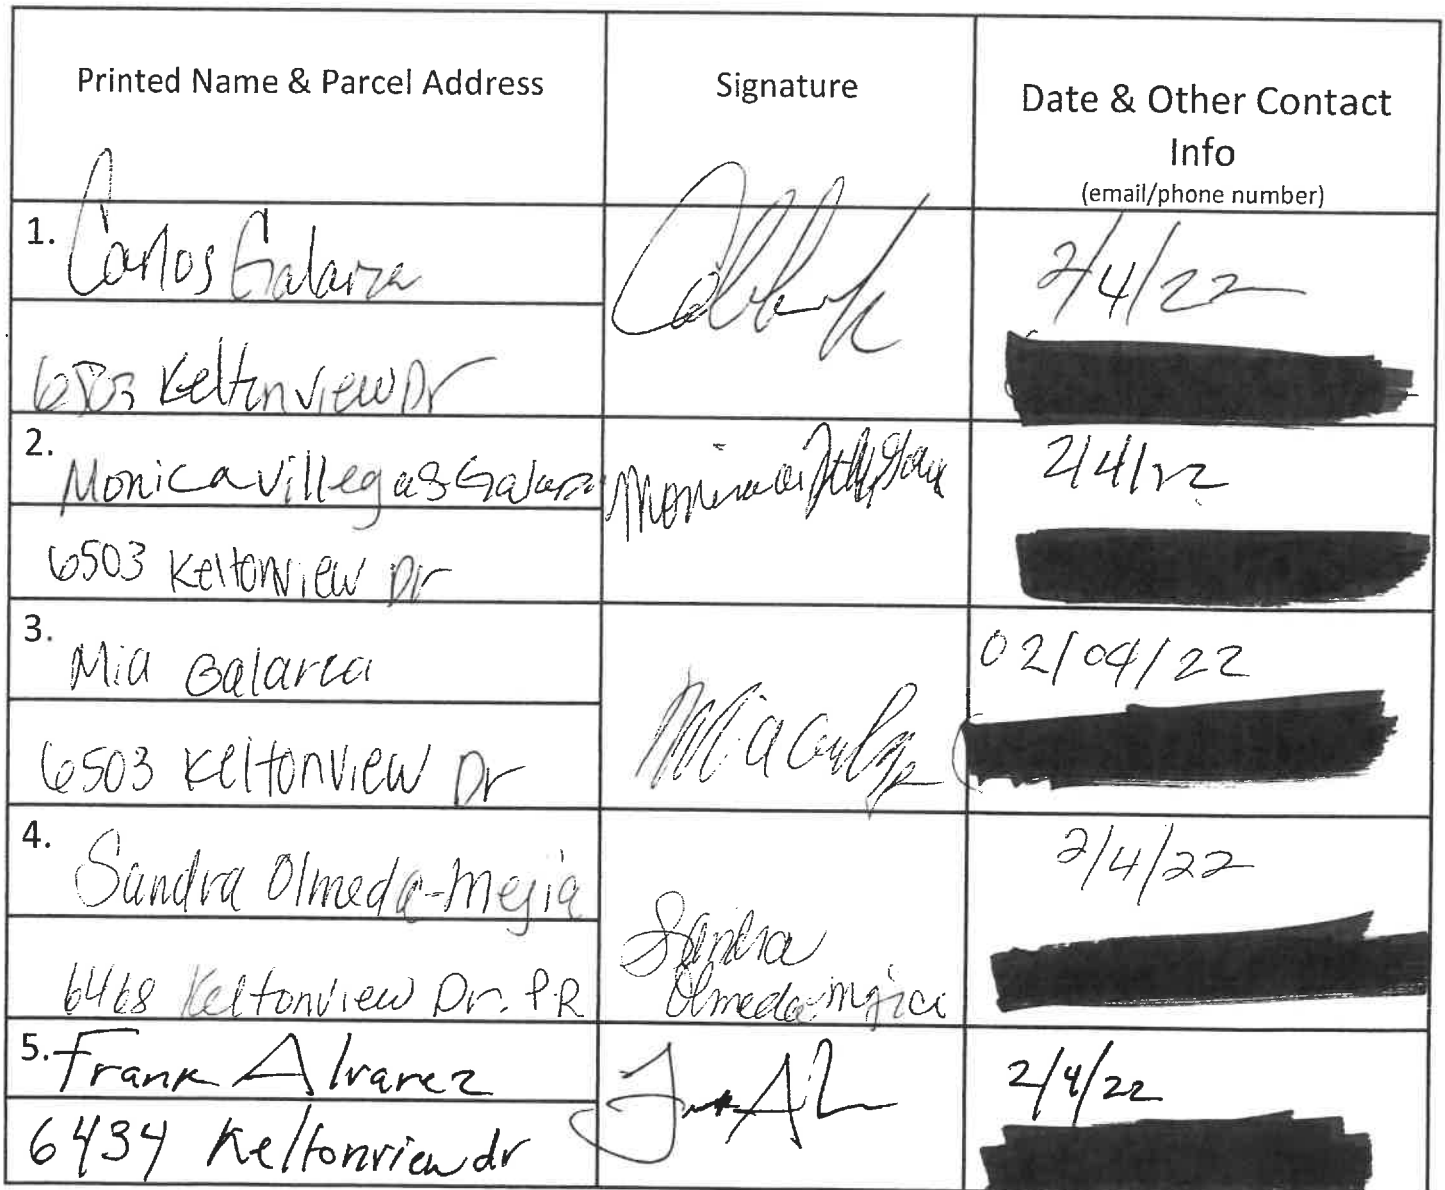 Printed Name & Parcel Address
Signature
Date & Other Contact
Info
(email/phone number)
1. Carlos Galarza
6503 Keltonview Dr
2/4/22
2. Monica Villegas Galarza
6503 Keltonview Dr
2/4/22
3. Mia Galarza
6503 Keltonview Dr
02/04/22
4. Sandra Olmeda-Mejia
6468 Keltonview Dr. P.R
Sandra
Olmeda-Mejia
2/4/22
5. Frank Alvarez
6434 Keltonview dr
2/4/22